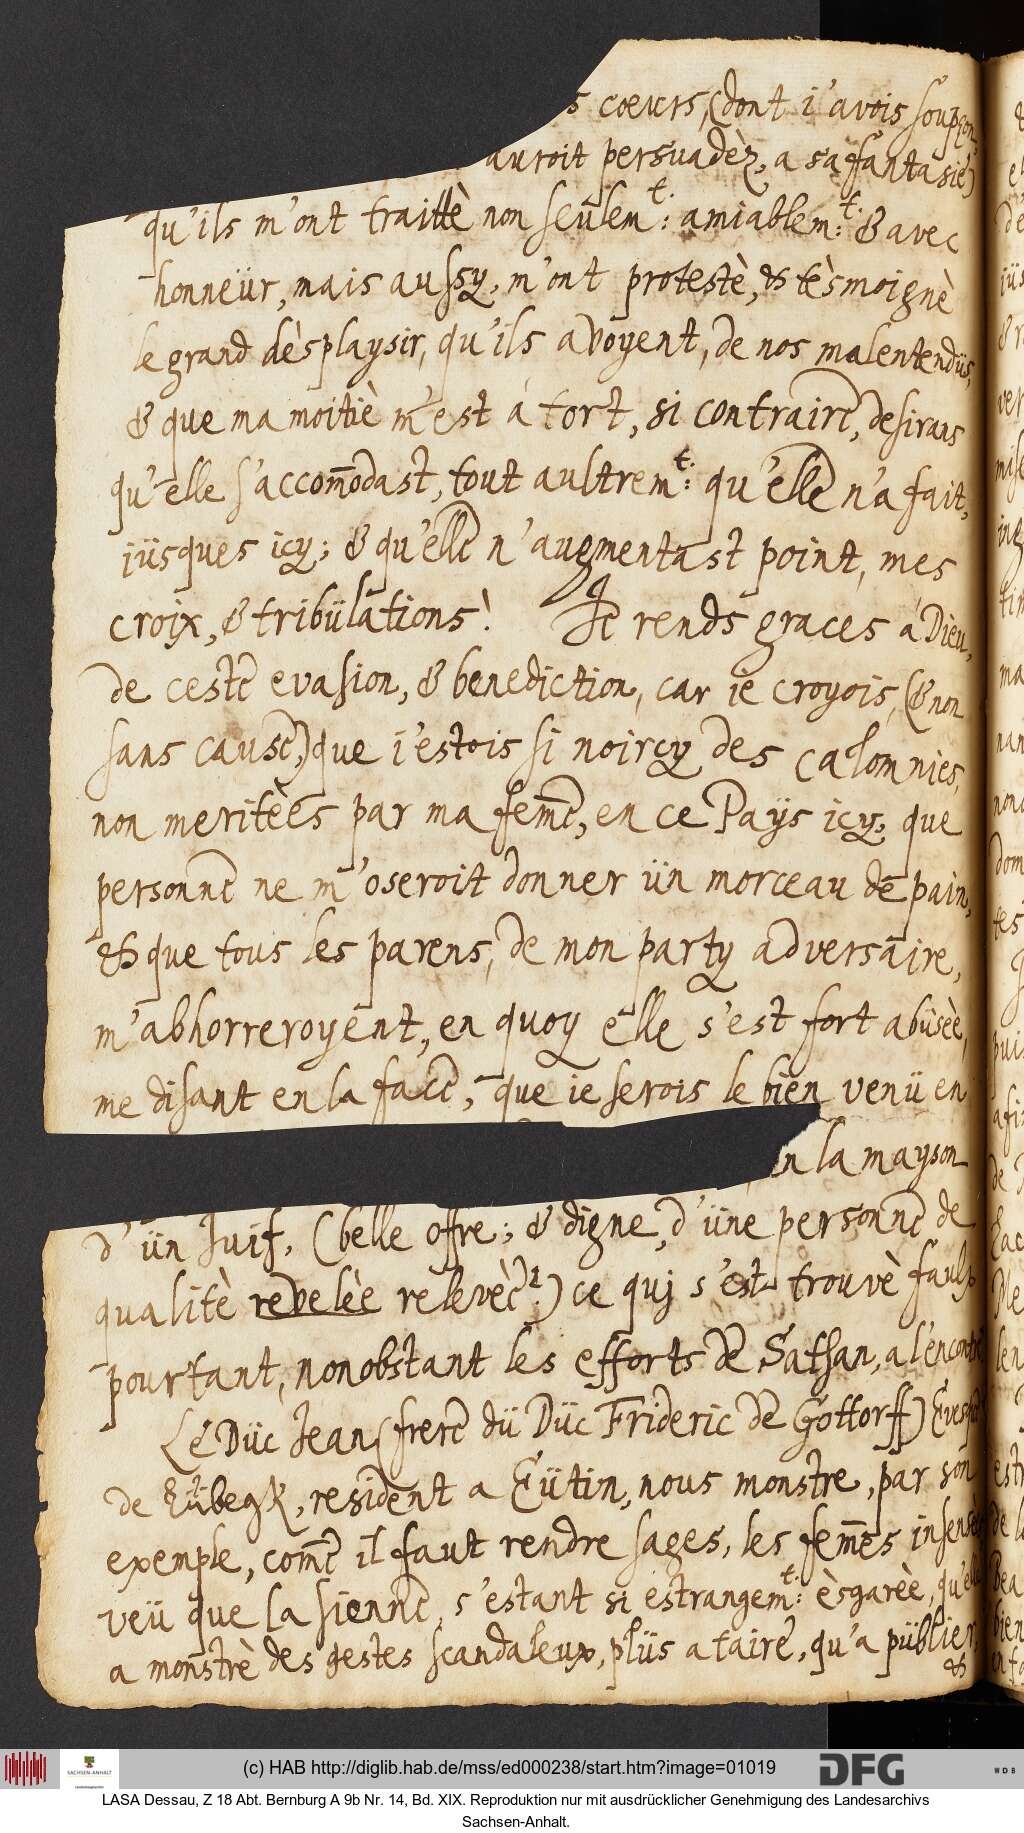 s cœurs, (dont i'avois soupçon,
auroit persuadèz, a sa fantasie)
qu'ils m'ont traittè non seulem.t: amiablem.t: & avec
honneür, mais aussy, m'ont protestè, & tèsmoignè
le grand dèsplaysir, qu'ils avoyent, de nos malentendüs,
& que ma moitiè m'est a tort, si contraire, desirans
qu'elle s'accom̄odast, tout aultrem.t: qu'elle n'a fait,
jüsques icy; & qu'elle n'augmentast point, mes
croix, & tribülations! Je rends graces a Dieu,
de ceste evasion, & benediction, car ie croyois, (& non
sans cause,) que i'estois si noircy des calomnies,
non meritèes par ma fem̄e, en ce Païs icy, que
personne ne m'oseroit donner ün morceau de pain,
& que tous les parens, de mon party adversaire,
m'abhorreroyent, en quoy elle s'est fort abüsèe,
me disant en la face, que ie serois le bien venü en
n la mayson
d'ün Juif, (belle offre; & digne, d'üne personne de
qualitè revelèe relevèe?) ce quj s'est trouvè faulx
pourtant, nonobstant les efforts de Sathan, a l'encontre
Le Düc Jean (frere dü Düc Frideric de Gottorff) Evesque
de Lübegk, resident a Eütin, nous monstre, par son
exemple, com̄e il faut rendre sages, les fem̄es insensèes
veü que la sienne, s'estant si estrangem.t: èsgarèe, qu'elle
a monstrè des gestes scandaleux, plüs a taire, qu'a püblier,
&
(c) HAB http://diglib.hab.de/mss/ed000238/start.htm?image=01019
SACHSEN-ANHALT
DFG
WDB
LASA Dessau, Z 18 Abt. Bernburg A 9b Nr. 14, Bd. XIX. Reproduktion nur mit ausdrücklicher Genehmigung des Landesarchivs
Sachsen-Anhalt.